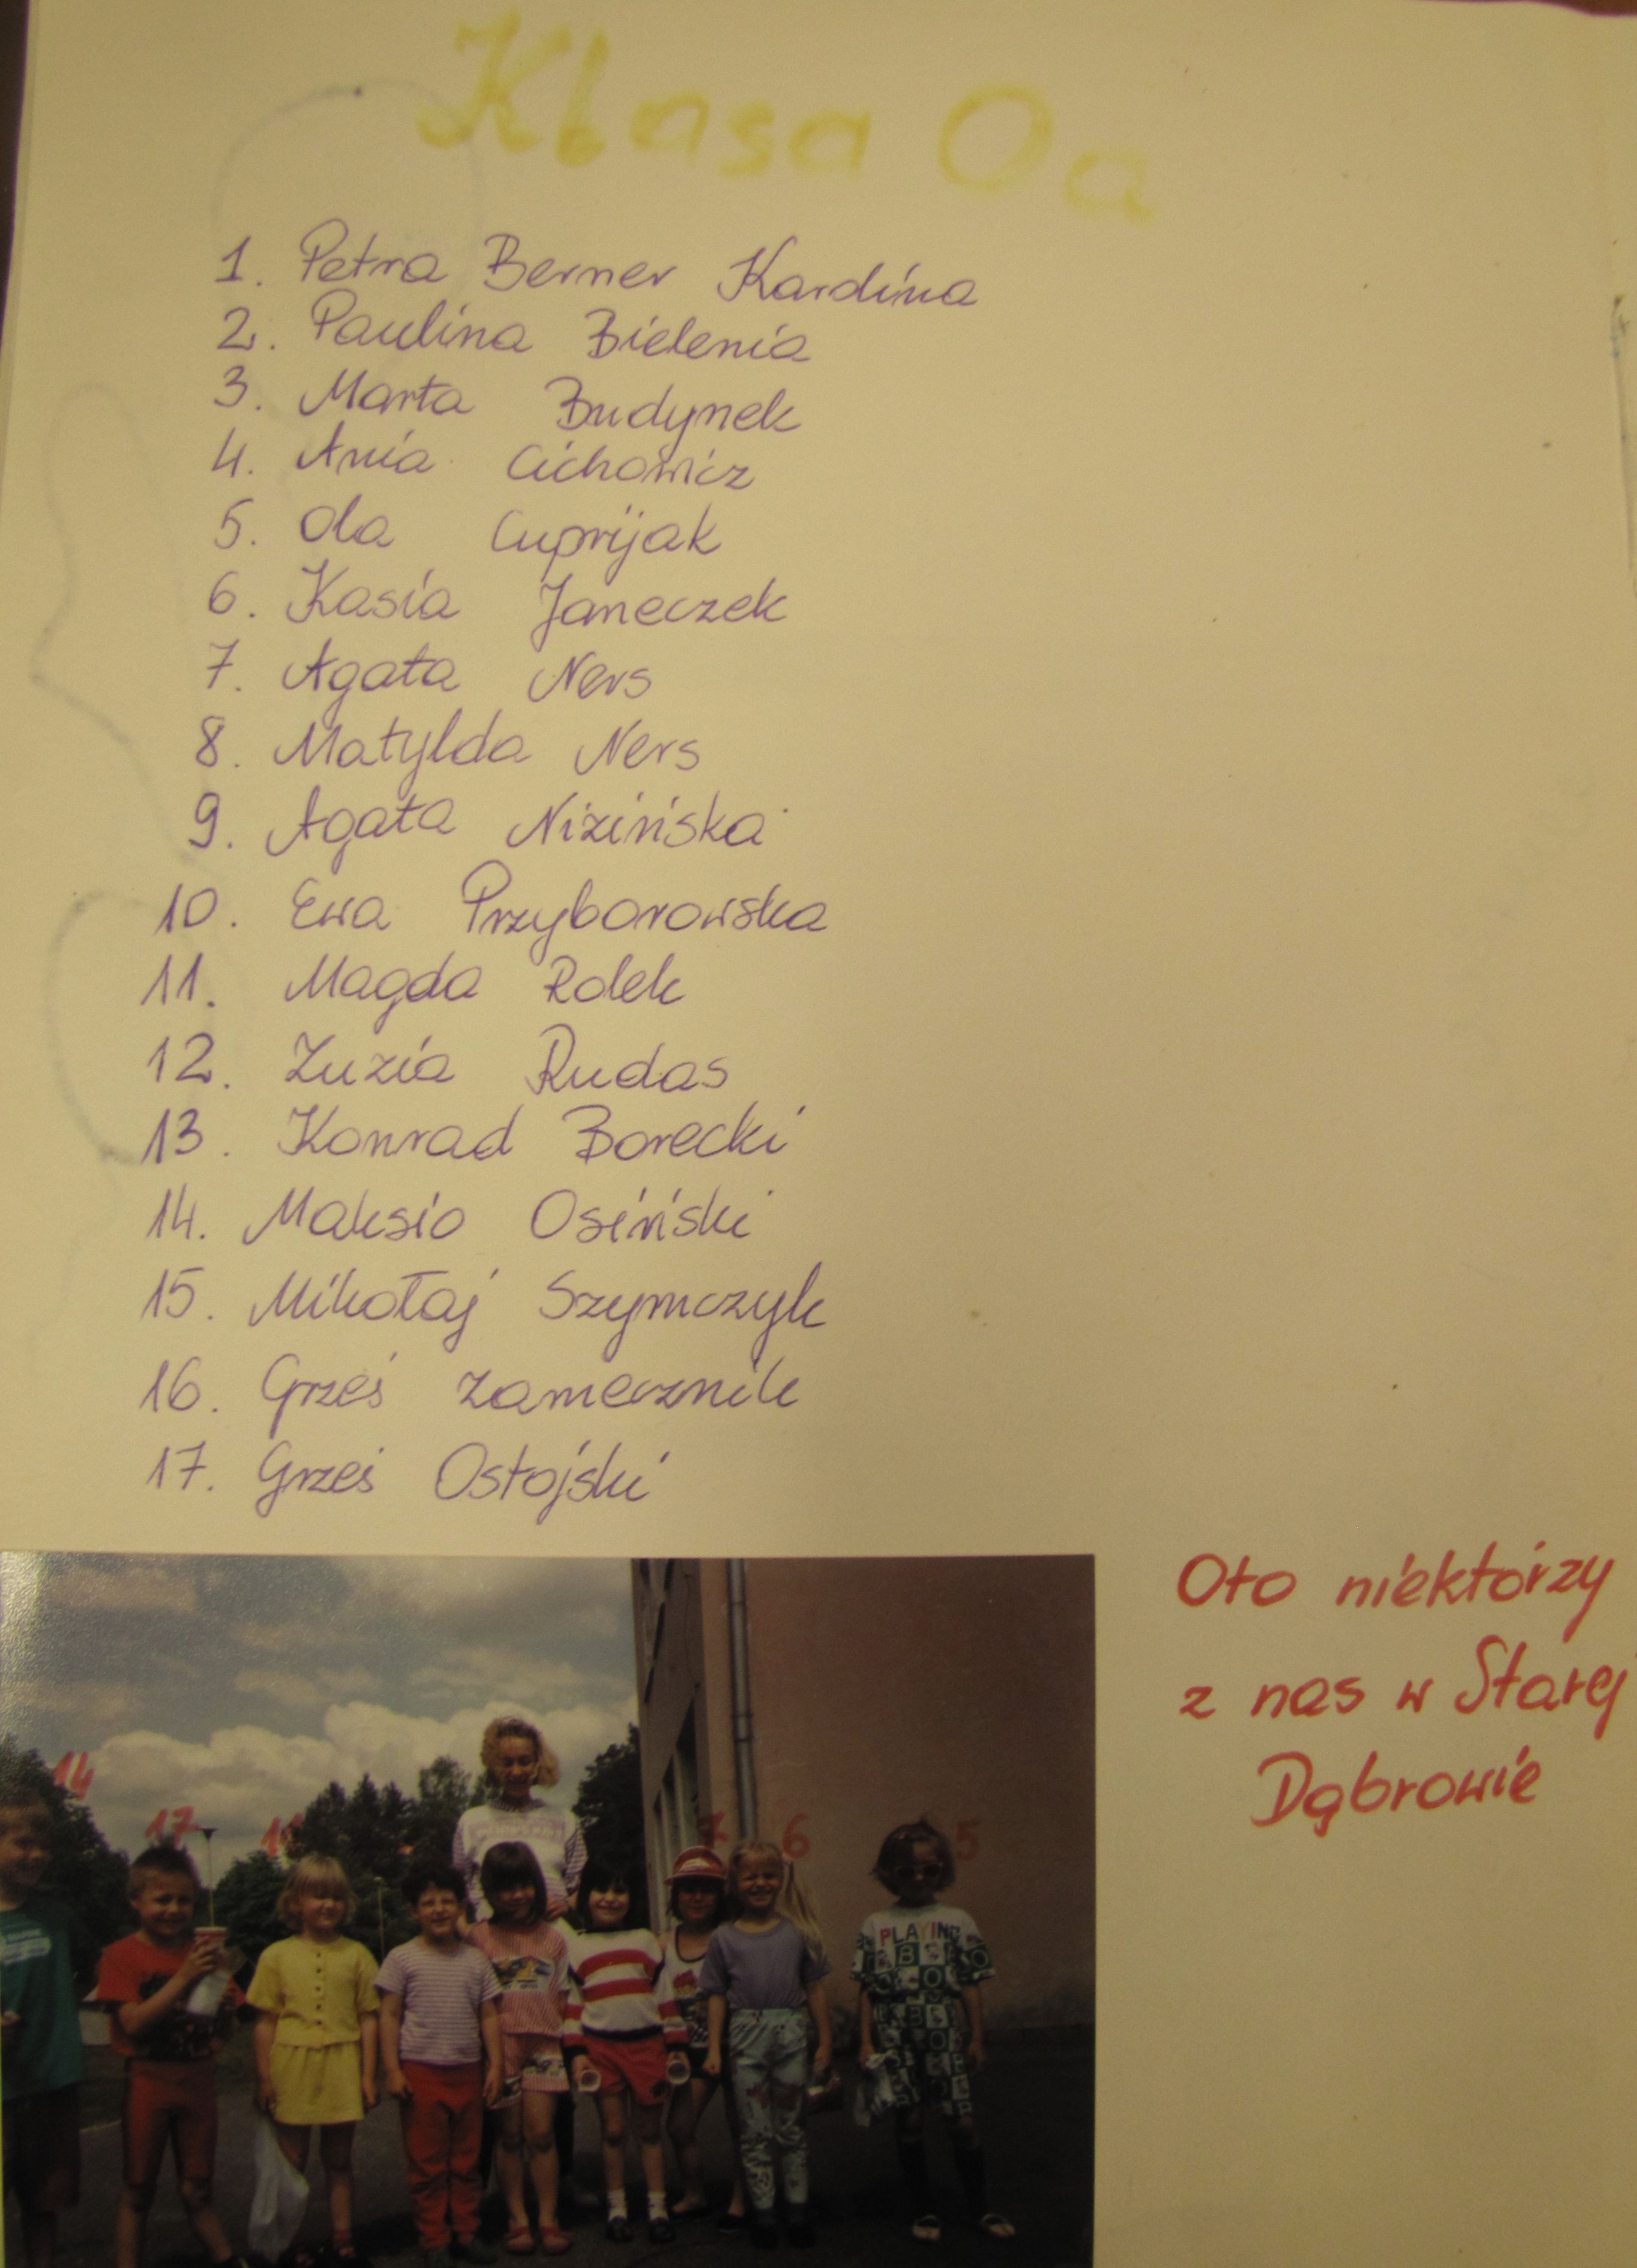 Klasa Oa
1. Petra Berner Kardina
2. Paulina Bielenia
3. Marta Budynek
4. Ania Cichowicz
5. Ola Cuprijak
6. Kasia Janeczek
7. Agata Ners
8. Matylda Ners
9. Agata Nizińska
10. Ewa Przyborowska
11. Magda Rolek
12. Zuzia Rudas
13. Konrad Borecki
14. Maksio Osiński
15. Mikołaj Szymczyk
16. Grześ Zamecznik
17. Grześ Ostojski
Oto niektórzy
z nas w Starej
Dąbrowie
14
17
7 6 5
PLAYING